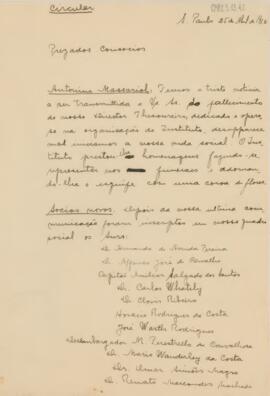 Circular
S. Paulo 25 de Abril de
Prezados Consocios
Antonino Massarioli: Temos a triste noticia
a ser transmittida a de fallecimento
do nosso Director Thesoureiro, dedicado e opero-
so na organisação do Instituto, desappare-
a nossa vida social. O Ins-
tituto prestou homenagens fazendo-se
representar nos funeraes e adornan-
do-lhe o esquife com uma corôa de flores.
Socios novos. Depois da nossa ultima com-
municação foram inscriptos em nosso quadro
social os Snrs.
Dr. Armando de Arruda Pereira
Dr. Affonso José de Carvalho
Capitão Salgado dos Santos
Dr. Carlos Whately
Dr. Clovis Ribeiro
Horacio Rodrigues da Costa
José Wasth Rodrigues
Desembargador M. de Carvalho
Dr. Mario Wanderley da Costa
Dr. Omar Simões Magro
Dr. Renato Marcondes Machado